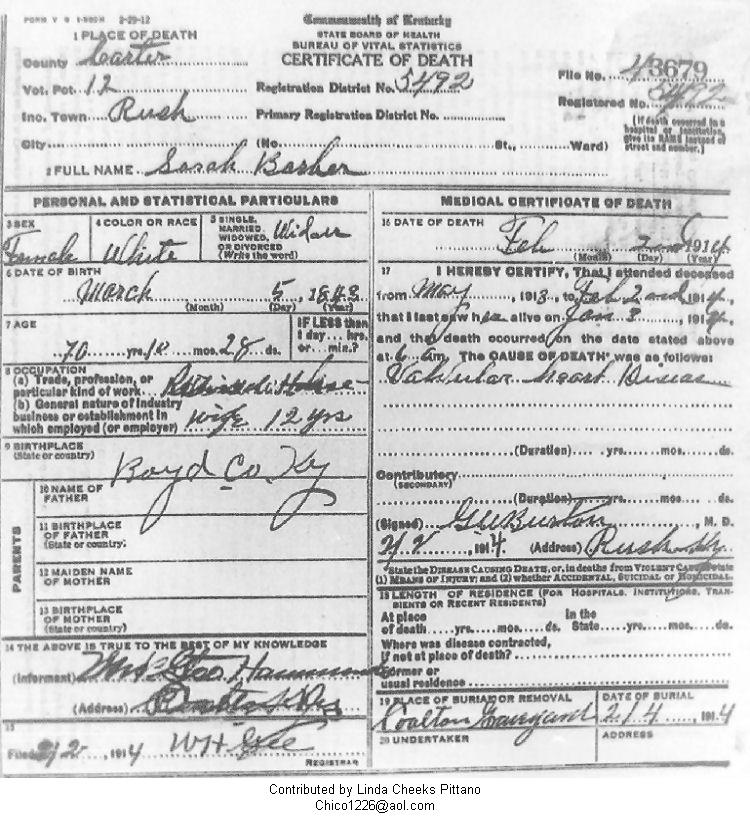 FORM V S 1-50M 2-29-12
Commonwealth of Kentucky
STATE BOARD OF HEALTH
BUREAU OF VITAL STATISTICS
CERTIFICATE OF DEATH
1 PLACE OF DEATH
County Carter
Vot. Pct. 12 Registration District No. 5492
File No. 43679
Registered No. 5492
Inc. Town Rush Primary Registration District No.
(If death occurred in a hospital or institution, give its NAME instead of street and number.)
City (No. St., Ward)
2 FULL NAME Sarah Barber
PERSONAL AND STATISTICAL PARTICULARS
3 SEX
Female
4 COLOR OR RACE
White
5 SINGLE, MARRIED, WIDOWED, OR DIVORCED (Write the word)
Widow
6 DATE OF BIRTH
March 5, 1843
(Month) (Day) (Year)
7 AGE
70 yrs. 10 mos. 28 ds.
IF LESS than 1 day... hrs. or... min.?
8 OCCUPATION
(a) Trade, profession, or particular kind of work
(b) General nature of industry business or establishment in which employed (or employer)
House
wife 12 yrs
9 BIRTHPLACE
(State or country)
Boyd Co. Ky
PARENTS
10 NAME OF FATHER
11 BIRTHPLACE OF FATHER (State or country)
12 MAIDEN NAME OF MOTHER
13 BIRTHPLACE OF MOTHER (State or country)
14 THE ABOVE IS TRUE TO THE BEST OF MY KNOWLEDGE
(Informant) Mrs Geo. Hammond
(Address)
15
Filed 2/2, 1914 WH
REGISTRAR
MEDICAL CERTIFICATE OF DEATH
16 DATE OF DEATH
Feb 2nd 1914
(Month) (Day) (Year)
17 I HEREBY CERTIFY, That I attended deceased
from May, 1913, to Feb 2nd 1914,
that I last saw her alive on Jan 3, 1914,
and that death occurred on the date stated above
at 6 am. The CAUSE OF DEATH* was as follows:
Valvular Heart Diseas
(Duration) yrs. mos. ds.
Contributory
(SECONDARY)
(Duration) yrs. mos. ds.
(Signed) GW Burton, M. D.
2/2, 1914 (Address) Rush Ky
*State the DISEASE CAUSING DEATH, or, in deaths from VIOLENT CAUSES state (1) MEANS OF INJURY; and (2) whether ACCIDENTAL, SUICIDAL or HOMICIDAL.
18 LENGTH OF RESIDENCE (FOR HOSPITALS, INSTITUTIONS, TRANSIENTS OR RECENT RESIDENTS)
At place of death yrs. mos. ds. In the State yrs. mos. ds.
Where was disease contracted,
if not at place of death?
Former or
usual residence
19 PLACE OF BURIAL OR REMOVAL
Coalton Graveyard
DATE OF BURIAL
2/4, 1914
20 UNDERTAKER
ADDRESS
Contributed by Linda Cheeks Pittano
Chico1226@aol.com